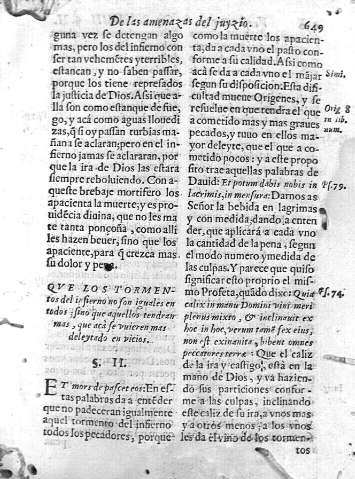 De las amenazas del juyzio. 649
guna vez se detengan algo
mas, pero los del infierno con
ser tan vehemẽtes y terribles,
estancan, y no saben passar,
porque los tiene represados
la justicia de Dios. Assi que a-
lla son como estanque de fue,
go, y acá como aguas lloued
izas, q̃ si oy passan turbias ma-
ñana se aclaran; pero en el in-
fierno jamas se aclararan, por
que la ira de Dios las estará
siempre reboluiendo. Con a-
queste brebaje mortifero los
apacienta la muerte; y es pro-
uidẽcia diuina, que no les ma
te tanta ponçoña, como alli
les hazen beuer, sino que los
apaciente, para q̃ crezca mas
su dolor y pena.
QVE LOS TORMEN-
tos del infierno no son iguales en
todos; sino que aquellos tendran
mas, que acá se vuieren mas
deleytado en vicios.
§. II.
ET mors depascet eos: En es-
tas palabras da a entẽder
que no padeceran igualmente
aquel tormento del infierno
todos los pecadores, porque
como la muerte los apacien-
ta, da a cada vno el pasto con-
forme a su calidad. Assi como
acá se da a cada vno el mãjar
segun su disposicion. Esta difi-
cultad mueue Origenes, y se
resuelue en que tendra el que
a cometido mas y mas graues
pecados, y tuuo en ellos ma-
yor deleyte, que el que a co-
metido pocos: y a este propo
sito trae aquellas palabras de
Dauid: Et potum dabis nobis in
lacrimis, in mensura: Darnos as
Señor la bebida en lagrimas
y con medida, dando a enten
der, que aplicará a cada vno
la cantidad de la pena, segun
el modo numero y medida de
las culpas. Y parece que quiso
significar esto proprio el mis-
mo Profeta, quãdo dixo: Quia
calix in manu Domini vini meri
plenus mixto, & inclinauit ex
hoc in hoc, verum tamẽ fex eius,
non est exinanita, bibent omnes
peccatores terræ: Que el caliz
de la ira y castigo, está en la
mano de Dios, y va hazien-
do sus particiones confor-
me a las culpas, inclinando
este caliz de su ira, a vnos mas
y a otros menos: a los vnos
les da el vino de los tormen-
tos
Simi.
Orig 8
in lib.
num.
Ps. 79.
Ps. 74.